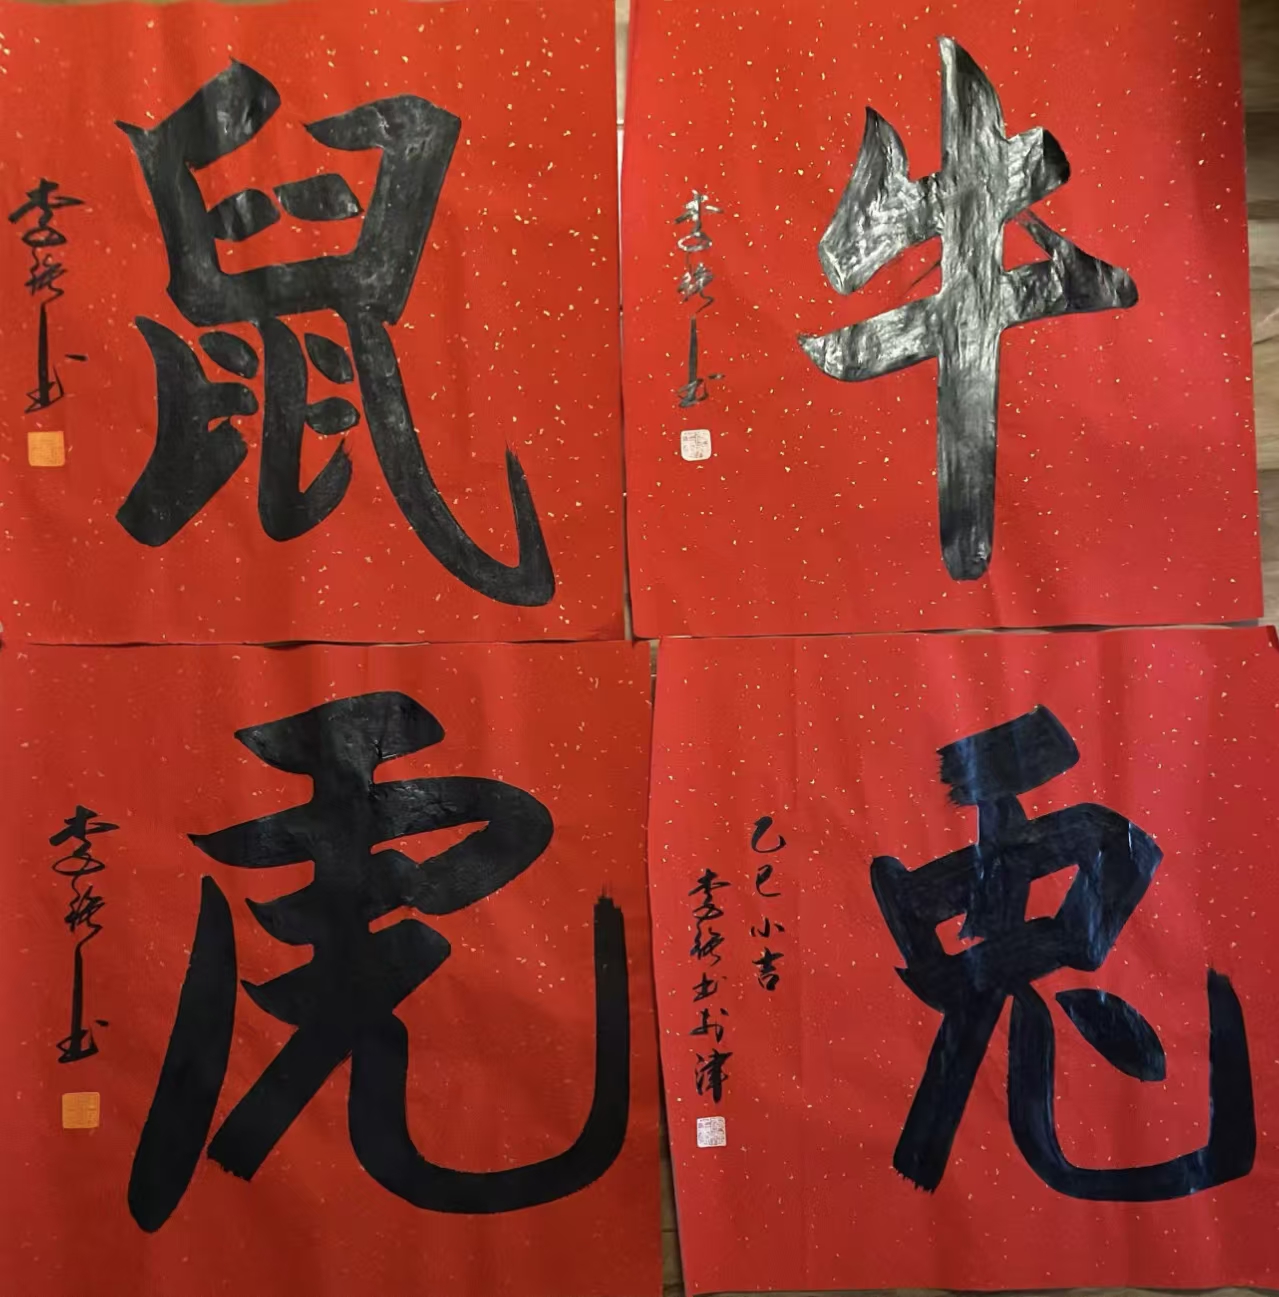 鼠
李
书
牛
李
书
虎
李
书
兔
乙巳小吉
李
书于津